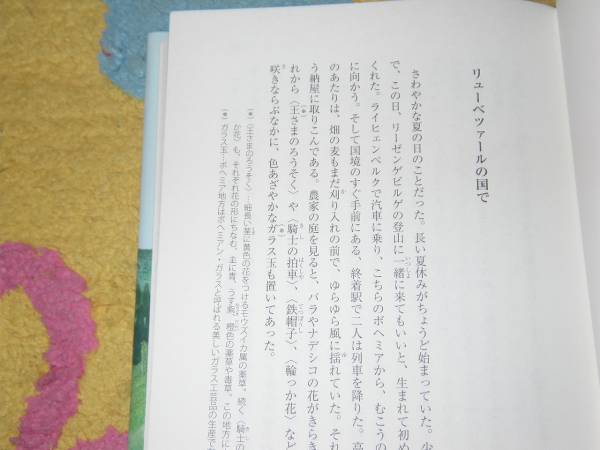 リューベツァールの国で
さわやかな夏の日のことだった。長い夏休みがちょうど始まっていた。少
で、この日、リーゼンゲビルゲの登山に一緒に来てもいいと、生まれて初め
くれた。ライヒェンベルクで汽車に乗り、こちらのボヘミアから、むこうの
に向かう。そして国境のすぐ手前にある、終着駅で二人は列車を降りた。高
のあたりは、畑の麦もまだ刈り入れの前で、ゆらゆら風に揺れていた。それ
う納屋に取りこんである。農家の庭を見ると、バラやナデシコの花がきらき
れから〈王さまのろうそく〉や〈騎士の拍車〉、〈鉄帽子〉、〈輪っか花〉など
咲きならぶなかに、色あざやかなガラス玉も置いてあった。
(＊)〈王さまのろうそく〉…細長い茎に黄色の花をつけるモウズイカ属の薬草。続く〈騎士の
か花〉も、それぞれ花の形にちなむ。主に青、うす紫、橙色の薬草や毒草。この地方に
(＊)ガラス玉…ボヘミア地方はボヘミアン・ガラスと呼ばれる美しいガラス工芸品の生産で